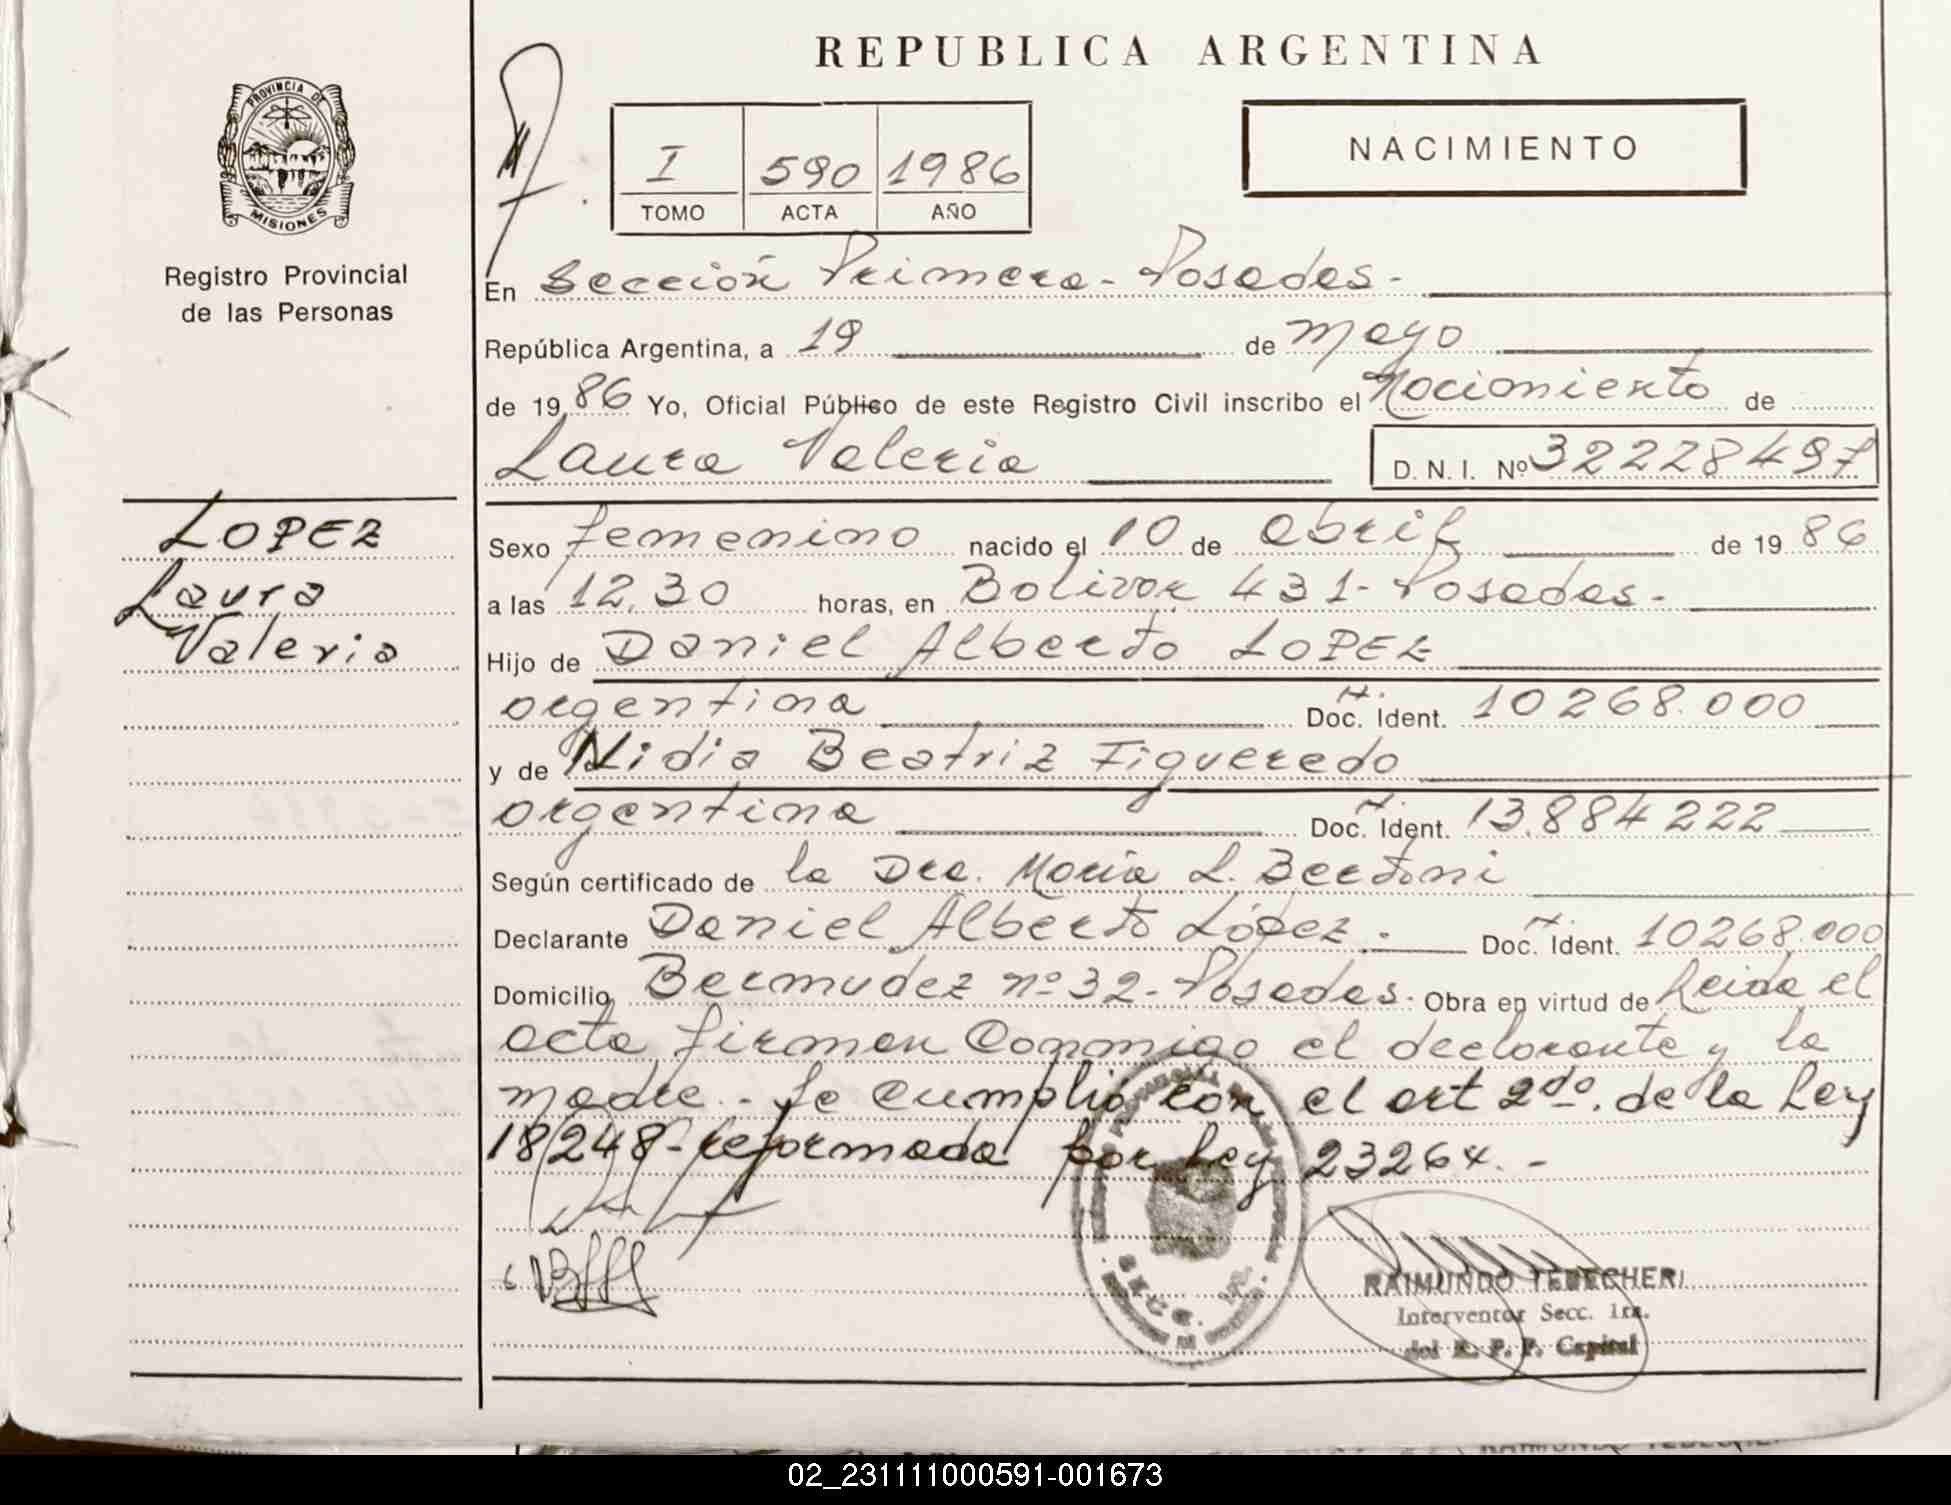 REPUBLICA ARGENTINA
PROVINCIA DE
MISIONES
Registro Provincial
de las Personas
I 590 1986
TOMO ACTA AÑO
NACIMIENTO
En Sección Primera - Posadas -
República Argentina, a 19 de mayo
de 1986 Yo, Oficial Público de este Registro Civil inscribo el Nacimiento de
Laura Valeria D. N. I. Nº 32228497
LOPEZ
Laura
Valeria
Sexo femenino nacido el 10 de abril de 1986
a las 12.30 horas, en Bolivar 431 - Posadas -
Hijo de Daniel Alberto LOPEZ
argentina Doc. Ident. 10268.000
y de Nidia Beatriz Figueredo
argentina Doc. Ident. 13.884222
Según certificado de la Dra. María L. Bertoni
Declarante Daniel Alberto López - Doc. Ident. 10268.000
Domicilio Bermudez nº 32 - Posadas - Obra en virtud de Leida el
acta firman conmigo el declarante y la
madre - Se cumplió con el art 2do. de la Ley
18248 - reformada por Ley 23264. -
RAIMUNDO TEDECHERI
Interventor Secc. 1ra.
del R. P. P. Capital
02_231111000591-001673